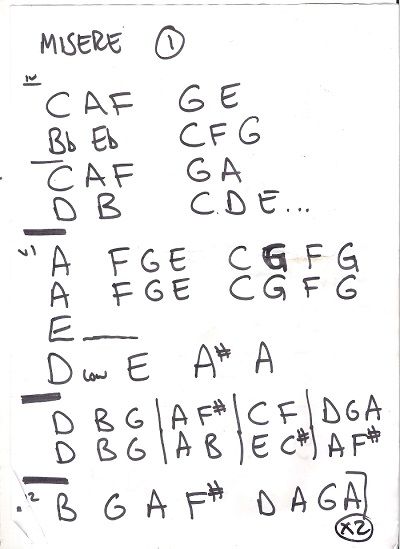 MISERE 1
IV
C A F G E
Bb Eb C F G
C A F G A
D B C. D E...
V1
A F G E C G F G
A F G E C G F G
E
D low E A# A
D B G | A F# | C F | D G A
D B G | A B | E C# | A F#
.2 B G A F# D A G A]
X2